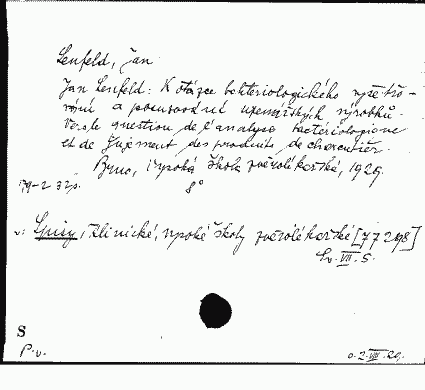 Lenfeld, Jan
Jan Lenfeld: K otázce bakteriologického vyšetřo-
vání a posuzování uzenářských výrobků.
Vers la question de l'analyse bactériologique
et de jugement des produits de charcutier.
Brno, Vysoká škola zvěrolékařská, 1929.
179-232 s. 8°
v: Spisy, klinické, vysoké školy zvěrolékařské [77298]
Sv. VII. 5.
S
P. v. o. 2. VIII. 29.